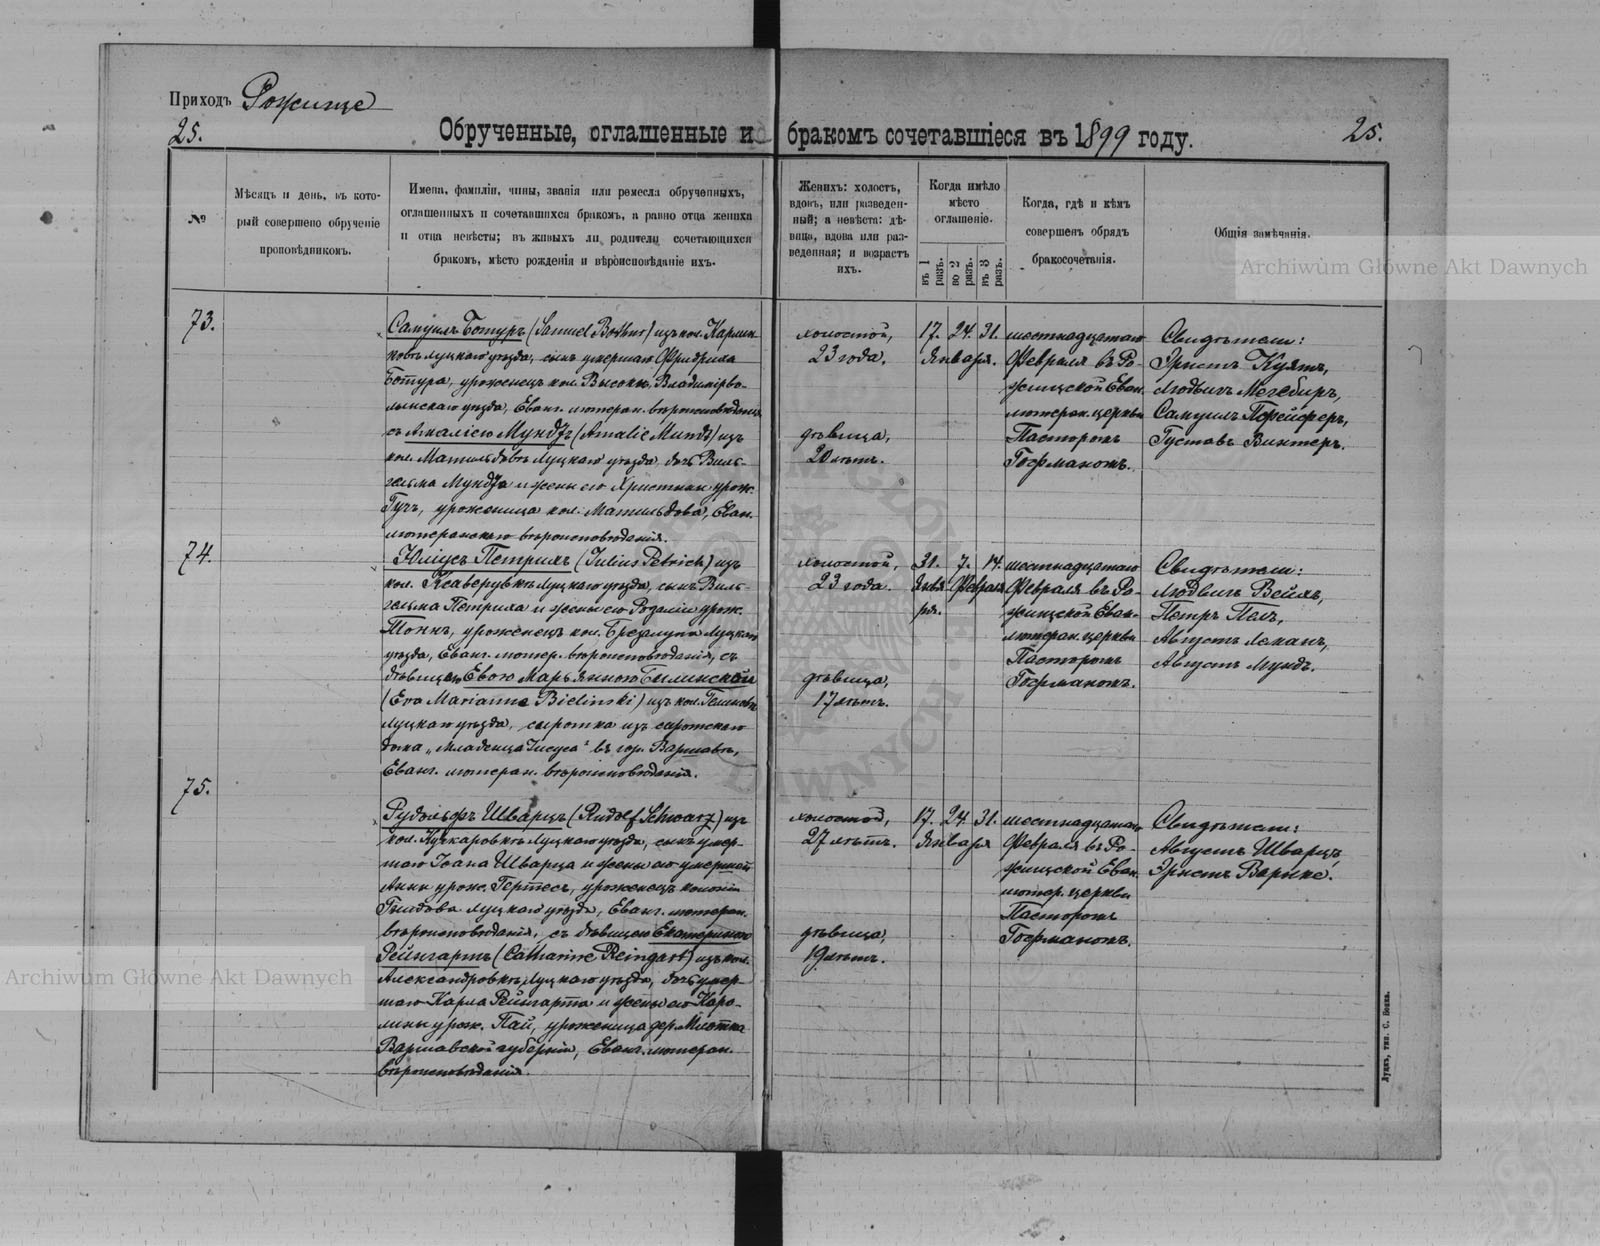 Приходъ Рожище
25.
Обрученные, оглашенные и бракомъ сочетавшіеся въ 1899 году.
25.
№
Мѣсяцъ и день, въ кото-
рый совершено обрученіе
проповѣдникомъ.
Имена, фамиліи, чины, званія или ремесла обрученныхъ,
оглашенныхъ и сочетавшихся бракомъ, а равно отца жениха
и отца невѣсты; въ живыхъ ли родители сочетающихся
бракомъ, мѣсто рожденія и вѣроисповѣданіе ихъ.
Женихъ: холостъ,
вдовъ, или разведен-
ный; а невѣста: дѣ-
вица, вдова или раз-
веденная; и возрастъ
ихъ.
Когда имѣло
мѣсто
оглашеніе.
въ 1
разъ.
во 2
разъ.
въ 3
разъ.
Когда, гдѣ и кѣмъ
совершенъ обрядъ
бракосочетанія.
Общія замѣчанія.
Archiwum Główne Akt Dawnych
73.
Самуилъ Ботуръ (Samuel Bothur) изъ кол. Кармин-
ковъ луцкаго уѣзда, сынъ умершаго Фридриха
Ботура, уроженецъ кол. Высокъ, Владимірво-
лынскаго уѣзда, Еванг. лютеран. вѣроисповѣданія
съ Амалією Мундтъ (Amalie Mundt) изъ
кол. Матильдовъ Луцкаго уѣзда, дочь Виль-
гельма Мундта и жены его Христины урож.
Гучъ, уроженица кол. Матильдова, Еван.
лютеранскаго вѣроисповѣданія.
холостой,
23 года.
дѣвица,
20 лѣтъ.
17. 24. 31.
Января.
шестнадцатаго
Февраля въ Ро-
жищской Еван.
лютеран. церкви
Пасторомъ
Гофманомъ.
Свидѣтели:
Эрнстъ Куятъ,
Людвигъ Мегебиръ,
Самуилъ Пфейферъ,
Густавъ Винтеръ.
74.
Юліусъ Петрихъ (Julius Petrich) изъ
кол. Ксаверувкъ луцкаго уѣзда, сынъ Виль-
гельма Петриха и жены его Розаліи урож.
Тонкъ, уроженецъ кол. Брезалупа Луцкаго
уѣзда, Еванг. лютер. вѣроисповѣданія, съ
дѣвицею Евою Марьянною Билинской
(Eva Marianne Bielinski) изъ кол.
Луцкаго уѣзда, сиротка изъ сиротскаго
дома „Младенца Іисуса" въ гор. Варшавѣ,
Еванг. лютеран. вѣроисповѣданія.
холостой,
23 года.
дѣвица,
17 лѣтъ.
31. 7. 14.
Янва Февраля
ря.
шестнадцатаго
Февраля въ Ро-
жищской Еван.
лютеран. церкви
Пасторомъ
Гофманомъ.
Свидѣтели:
Людвигъ Вейхъ,
Петръ Пелъ,
Августъ Леманъ,
Августъ Мундъ.
75.
Рудольфъ Шварцъ (Rudolf Schwarz) изъ
кол. Кучкаровкъ Луцкаго уѣзда, сынъ умер-
шаго Іоана Шварца и жены его умершей
Анны урож. Гертесъ, уроженецъ колоніи
Гнидова луцкаго уѣзда, Еванг. лютеран.
вѣроисповѣданія, съ дѣвицею Екатериною
Рейнгартъ (Catharine Reingart) изъ кол.
Александровкъ Луцкаго уѣзда, дочь умер-
шаго Карла Рейнгарта и жены его Каро-
лины урож. Пай, уроженица дер. Млотка
Варшавской губерніи, Еванг. лютеран.
вѣроисповѣданія.
холостой,
27 лѣтъ.
дѣвица,
19 лѣтъ.
17. 24. 31.
Января
шестнадцатаго
Февраля въ Ро-
жищской Еван.
лютер. церкви
Пасторомъ
Гофманомъ.
Свидѣтели:
Августъ Шварцъ,
Эрнстъ Варнке.
Archiwum Główne Akt Dawnych
Луцкъ, тип. С. Бокя.